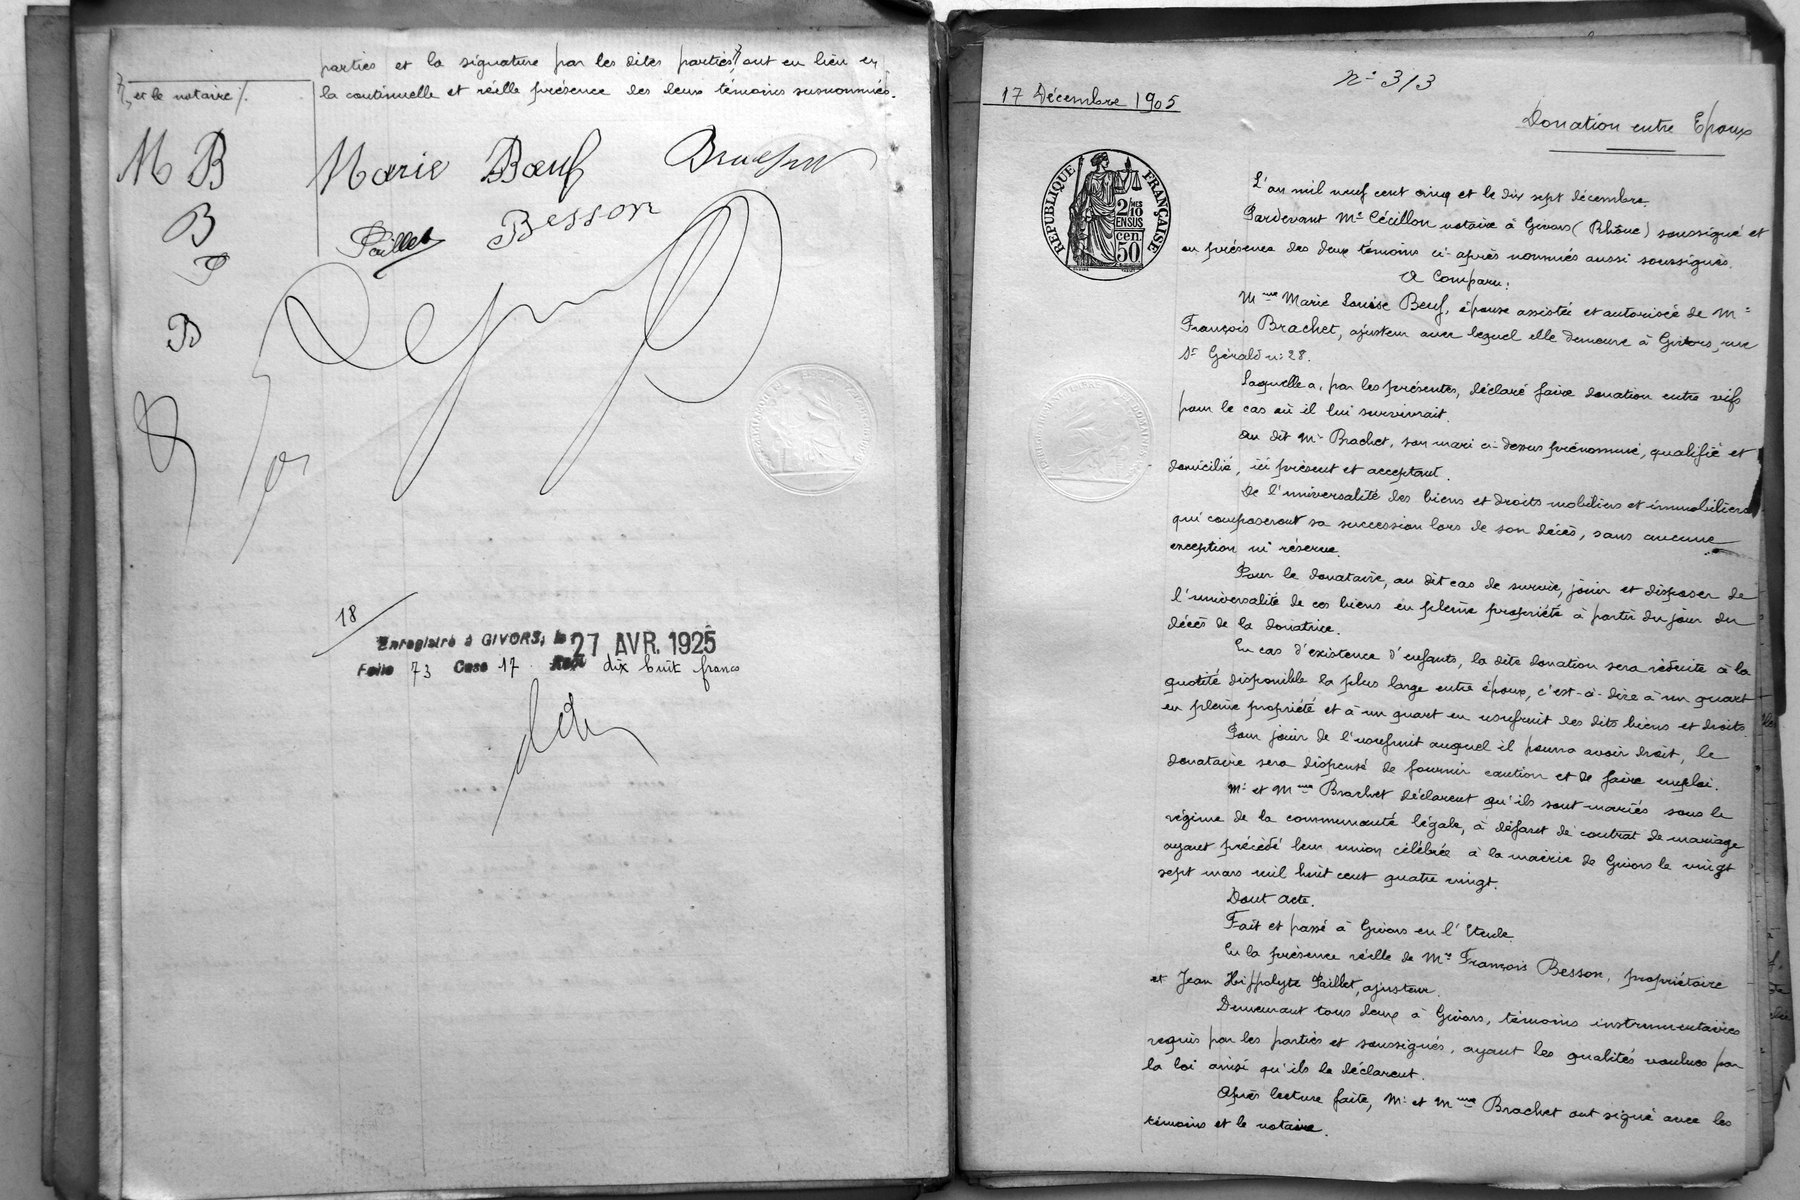 parties et la signature par les dites parties, ont eu lieu en
et le notaire
la continuelle et réelle présence des deux témoins susnommés.
M B
Marie Bœuf
B
Paillet
Besson
B
18
Enregistré à GIVORS, le 27 AVR. 1925
Folio 73 Case 17 dix huit francs
N° 313
17 Décembre 1905
Donation entre Epoux
REPUBLIQUE FRANÇAISE
2/10 MES
EN SUS
50 cen.
L'an mil neuf cent cinq et le dix sept décembre.
Pardevant Me Cécillon notaire à Givors (Rhône) soussigné et
en présence des deux témoins ci-après nommés aussi soussignés.
A Comparu:
Mme Marie Louise Beuf, épouse assistée et autorisée de Mr
François Brachet, ajusteur avec lequel elle demeure à Givors, rue
St Gérald n: 28.
Laquelle a, par les présentes, déclaré faire donation entre vifs
pour le cas où il lui survivrait.
Au dit Mr Brachet, son mari ci-dessus prénommé, qualifié et
domicilié, ici présent et acceptant.
De l'universalité des biens et droits mobiliers et immobiliers
qui composeront sa succession lors de son décès, sans aucune
exception ni réserve.
Pour le donataire, au dit cas de survie, jouir et disposer de
l'universalité de ces biens en pleine propriété à partir du jour du
décès de la donatrice.
En cas d'existence d'enfants, la dite donation sera réduite à la
quotité disponible la plus large entre époux, c'est-à-dire à un quart
en pleine propriété et à un quart en usufruit des dits biens et droits.
Pour jouir de l'usufruit auquel il pourra avoir droit, le
donataire sera dispensé de fournir caution et de faire emploi.
Mr et Mme Brachet déclarent qu'ils sont mariés sous le
régime de la communauté légale, à défaut de contrat de mariage
ayant précédé leur union célébrée à la mairie de Givors le vingt
sept mars mil huit cent quatre vingt.
Dont acte.
Fait et passé à Givors en l'Etude
En la présence réelle de Mrs François Besson, propriétaire
et Jean Hippolyte Paillet, ajusteur.
Demeurant tous deux à Givors, témoins instrumentaires
requis par les parties et soussignés, ayant les qualités voulues par
la loi ainsi qu'ils le déclarent.
Après lecture faite, Mr et Mme Brachet ont signé avec les
témoins et le notaire.